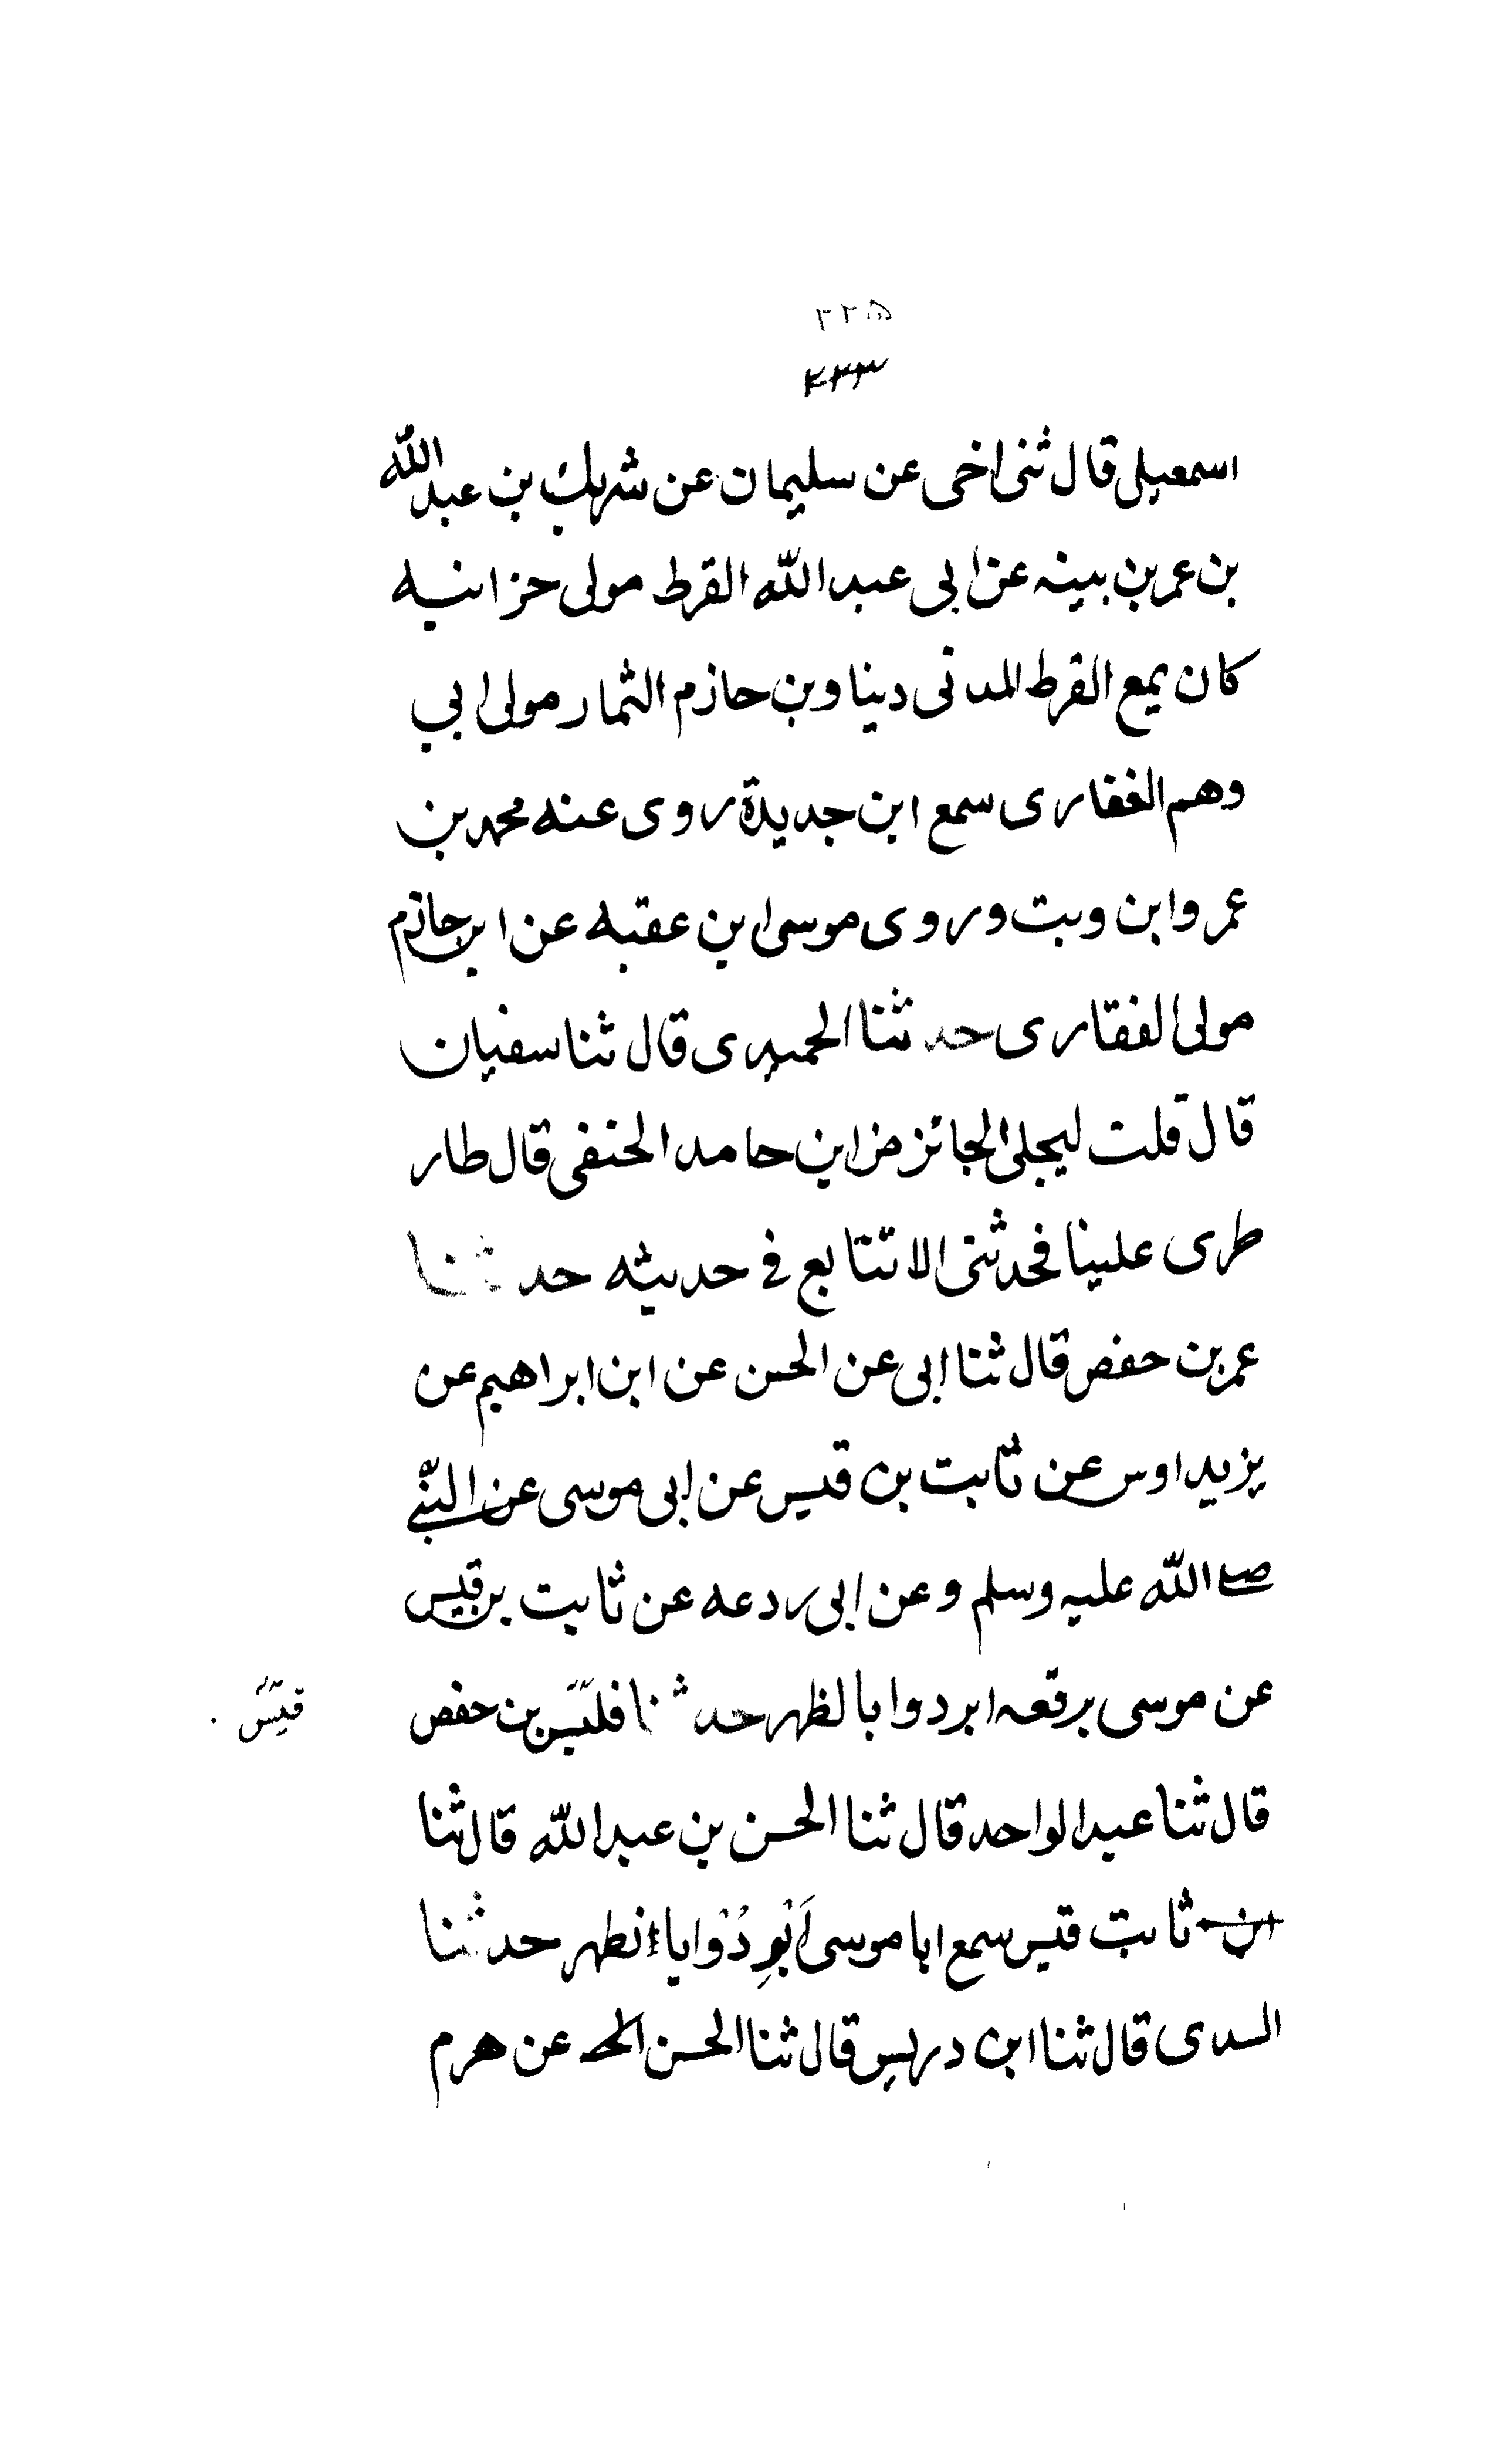 ٢٢٥
٢٣٣
اسمعيلى قال ثنى اخى عن سليمان عن شريك بن عبد الله
بن عمر بن بينه عن ابى عبد الله القرط مولى خزانيه
كان يمع القرط المدنى ديناو بن حازم الثمار مولى ابي
وهم الغفارى سمع ابن جديدة روى عنه محمد بن
عمر وابن وبت وروى موسى ابن عقبه عن ابر حازم
مولى الفقارى حدثنا الحميدى قال ثنا سفيان
قال قلت ليجلى الجائز من ابن حامد الحنفى قال طار
طرى علينا فحدثنى الا تتابع في حديثه حدثنا
عمر بن حفص قال ثنا ابى عن الحسن عن ابن ابراهيم عن
يزيد اوس عن ثابت بن قيس عن ابى موسى عن النبي
صلى الله عليه وسلم وعن ابى ردعه عن ثابت بن قيس
عن موسى برقعه ابردوا بالظهر حدثنا قليس بن حفص
قيس
قال ثنا عبد الواحد قال ثنا الحسن بن عبد الله قال ثنا
ابن ثابت قيس سمع ابا موسى اَبْرِدُوْا باانظهر حدثنا
السدى قال ثنا ابن دريس قال ثنا الحسن الحـ عن هرم